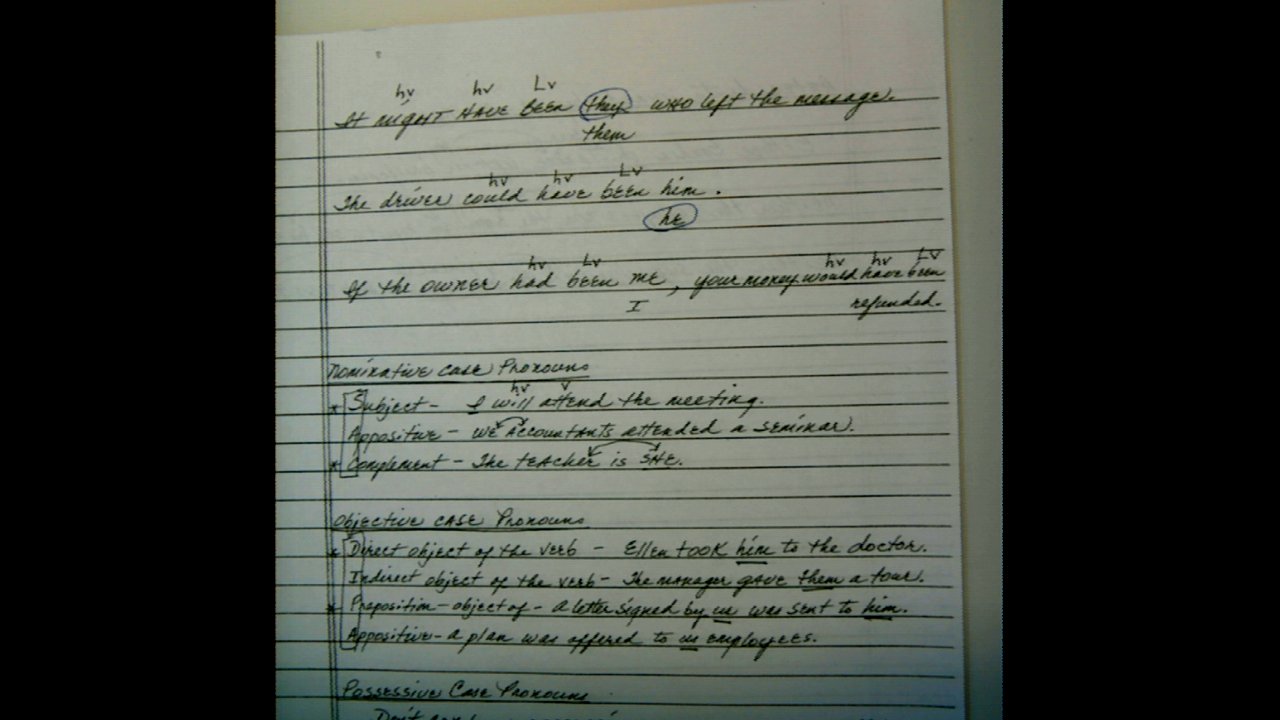 hv hv Lv
It might have been they who left the message.
them
hv hv Lv
The driver could have been him.
he
hv Lv hv hv LV
If the owner had been me, your money would have been
I refunded.
Nominative Case Pronouns
hv v
* Subject - I will attend the meeting.
Appositive - We accountants attended a seminar.
* Complement - The teacher is she.
Objective Case Pronouns
* Direct object of the verb - Ellen took him to the doctor.
Indirect object of the verb - The manager gave them a tour.
* Preposition - object of - a letter signed by us was sent to him.
Appositive - a plan was offered to us employees.
Possessive Case Pronouns